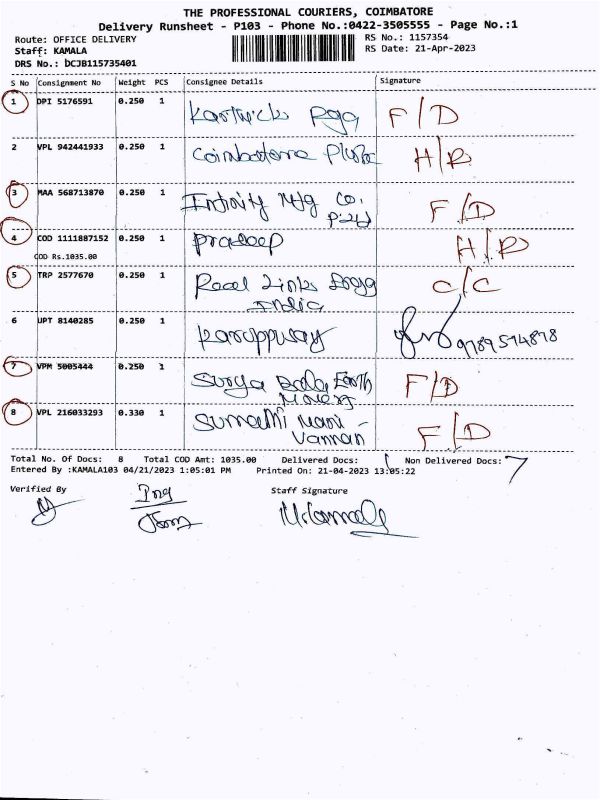 THE PROFESSIONAL COURIERS, COIMBATORE
Delivery Runsheet - P103 - Phone No.:0422-3505555 - Page No.:1
Route: OFFICE DELIVERY RS No.: 1157354
Staff: KAMALA RS Date: 21-Apr-2023
DRS No.: bCJB115735401
S No Consignment No Weight PCS Consignee Details Signature
1 DPI 5176591 0.250 1 F/D
2 VPL 942441933 0.250 1 Coimbatore H/R
3 MAA 568713870 0.250 1 Infinity Mfg Co. F/D
4 COD 1111887152 0.250 1 Pradeep H/R
COD Rs.1035.00
5 TRP 2577670 0.250 1 Real Links C/C
India
6 UPT 8140285 0.250 1
7 VPM 5005444 0.250 1 Surya Bala Earth F/D
Movers
8 VPL 216033293 0.330 1 Sumathi Mani - F/D
Vannan
Total No. Of Docs: 8 Total COD Amt: 1035.00 Delivered Docs: 1 Non Delivered Docs: 7
Entered By :KAMALA103 04/21/2023 1:05:01 PM Printed On: 21-04-2023 13:05:22
Verified By Staff Signature